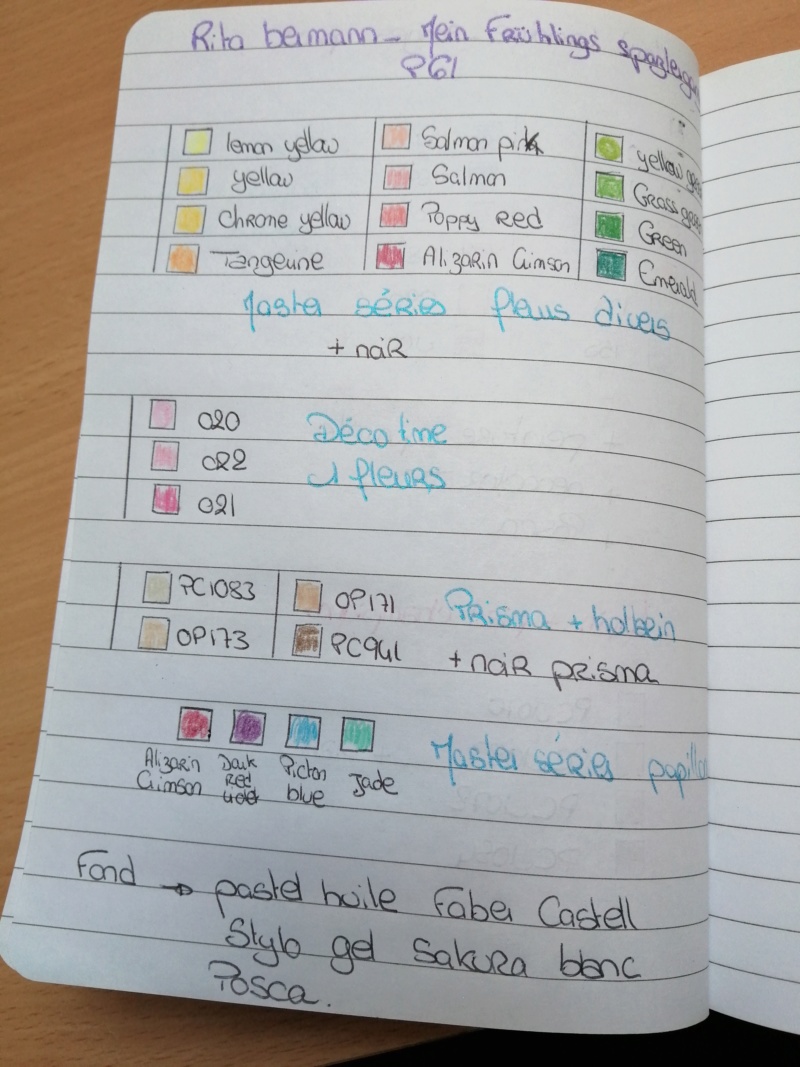 Rita bermann - Mein Frühlings spaziergang
P61
lemon yellow Salmon pink yellow green
yellow Salmon Grass green
Chrone yellow Poppy Red Green
Tangerine Alizarin Crimson Emerald
Master séries fleurs divers
+ noiR
020 Déco time
022 fleurs
021
PC1083 OP171 Prisma + holbein
OP173 PC941 + noiR prisma
Alizarin Crimson Dark Red Violet Picton blue Jade Master séries papillon
Fond → pastel huile Faber Castell
Stylo gel Sakura blanc
Posca.